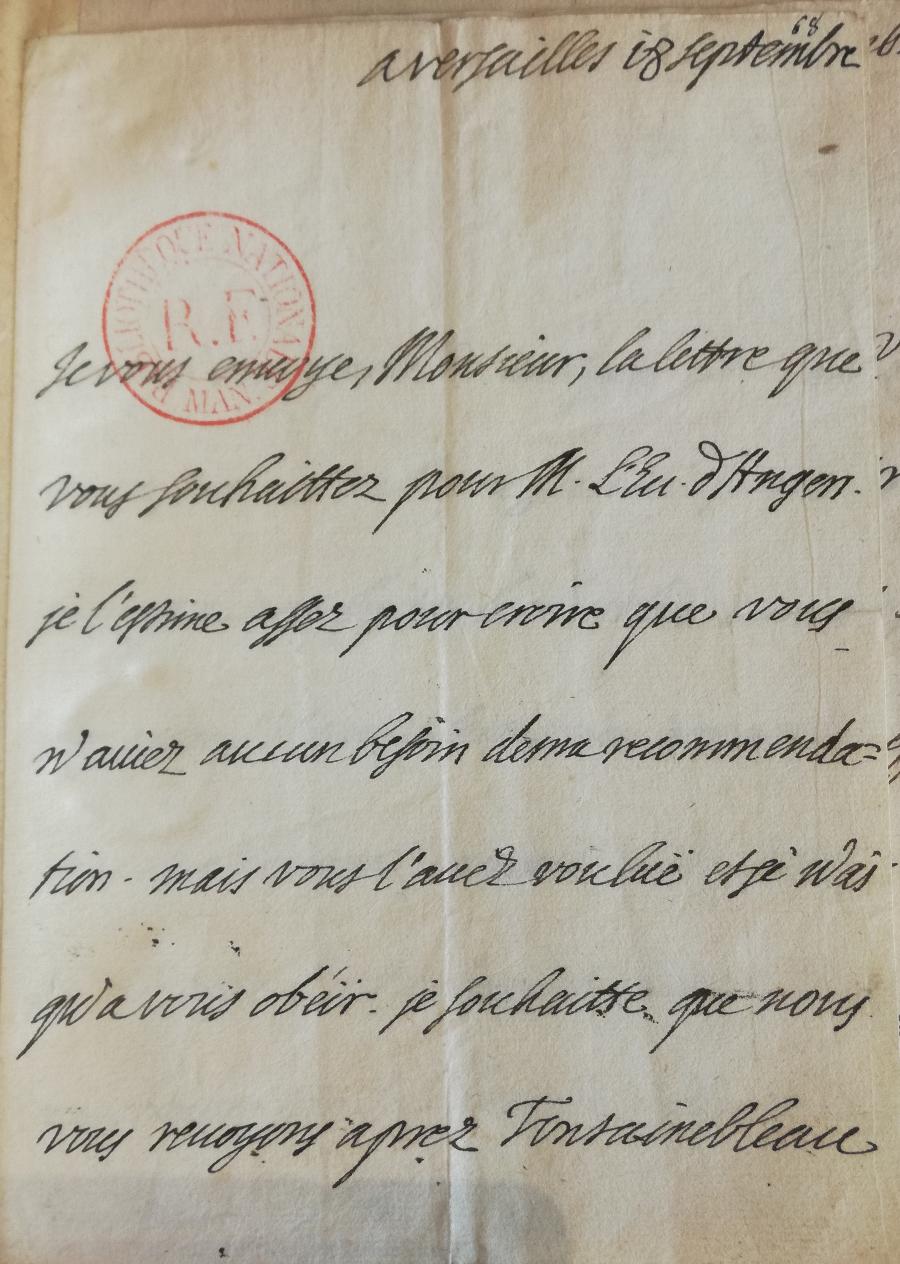 68
a versailles 18 septembre
BIBLIOTHEQUE NATIONALE MAN
R.F
Je vous envoye, Monsieur, la lettre que
vous souhaittez pour M. L'Eu. d'Angen.
je l'estime assez pour croire que vous
n'auiez aucun besoin de ma recommenda=
tion. mais vous l'auez voulüe et je n'ai
qu'a vous obéir. je souhaitte que nous
vous reuoyons aprez Fontainebleau